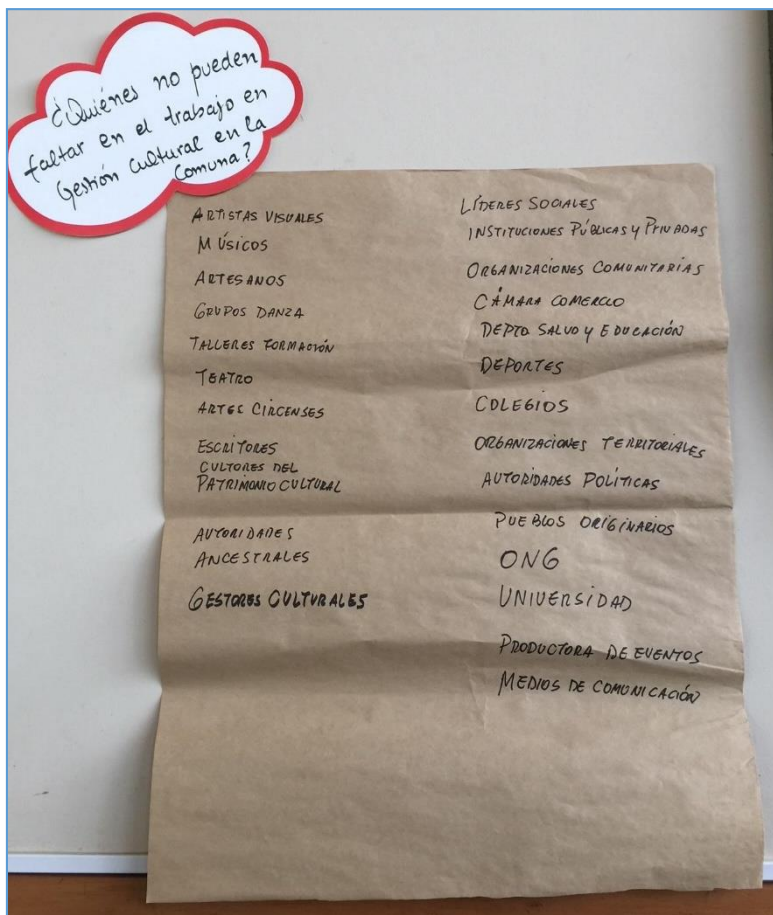 ¿Quiénes no pueden
faltar en el trabajo en
Gestión cultural en la
Comuna?
ARTISTAS VISUALES
MÚSICOS
ARTESANOS
GRUPOS DANZA
TALLERES FORMACIÓN
TEATRO
ARTES CIRCENSES
ESCRITORES
CULTORES DEL
PATRIMONIO CULTURAL
AUTORIDADES
ANCESTRALES
GESTORES CULTURALES
LÍDERES SOCIALES
INSTITUCIONES PÚBLICAS Y PRIVADAS
ORGANIZACIONES COMUNITARIAS
CÁMARA COMERCIO
DEPTO SALUD Y EDUCACIÓN
DEPORTES
COLEGIOS
ORGANIZACIONES TERRITORIALES
AUTORIDADES POLÍTICAS
PUEBLOS ORIGINARIOS
ONG
UNIVERSIDAD
PRODUCTORA DE EVENTOS
MEDIOS DE COMUNICACIÓN